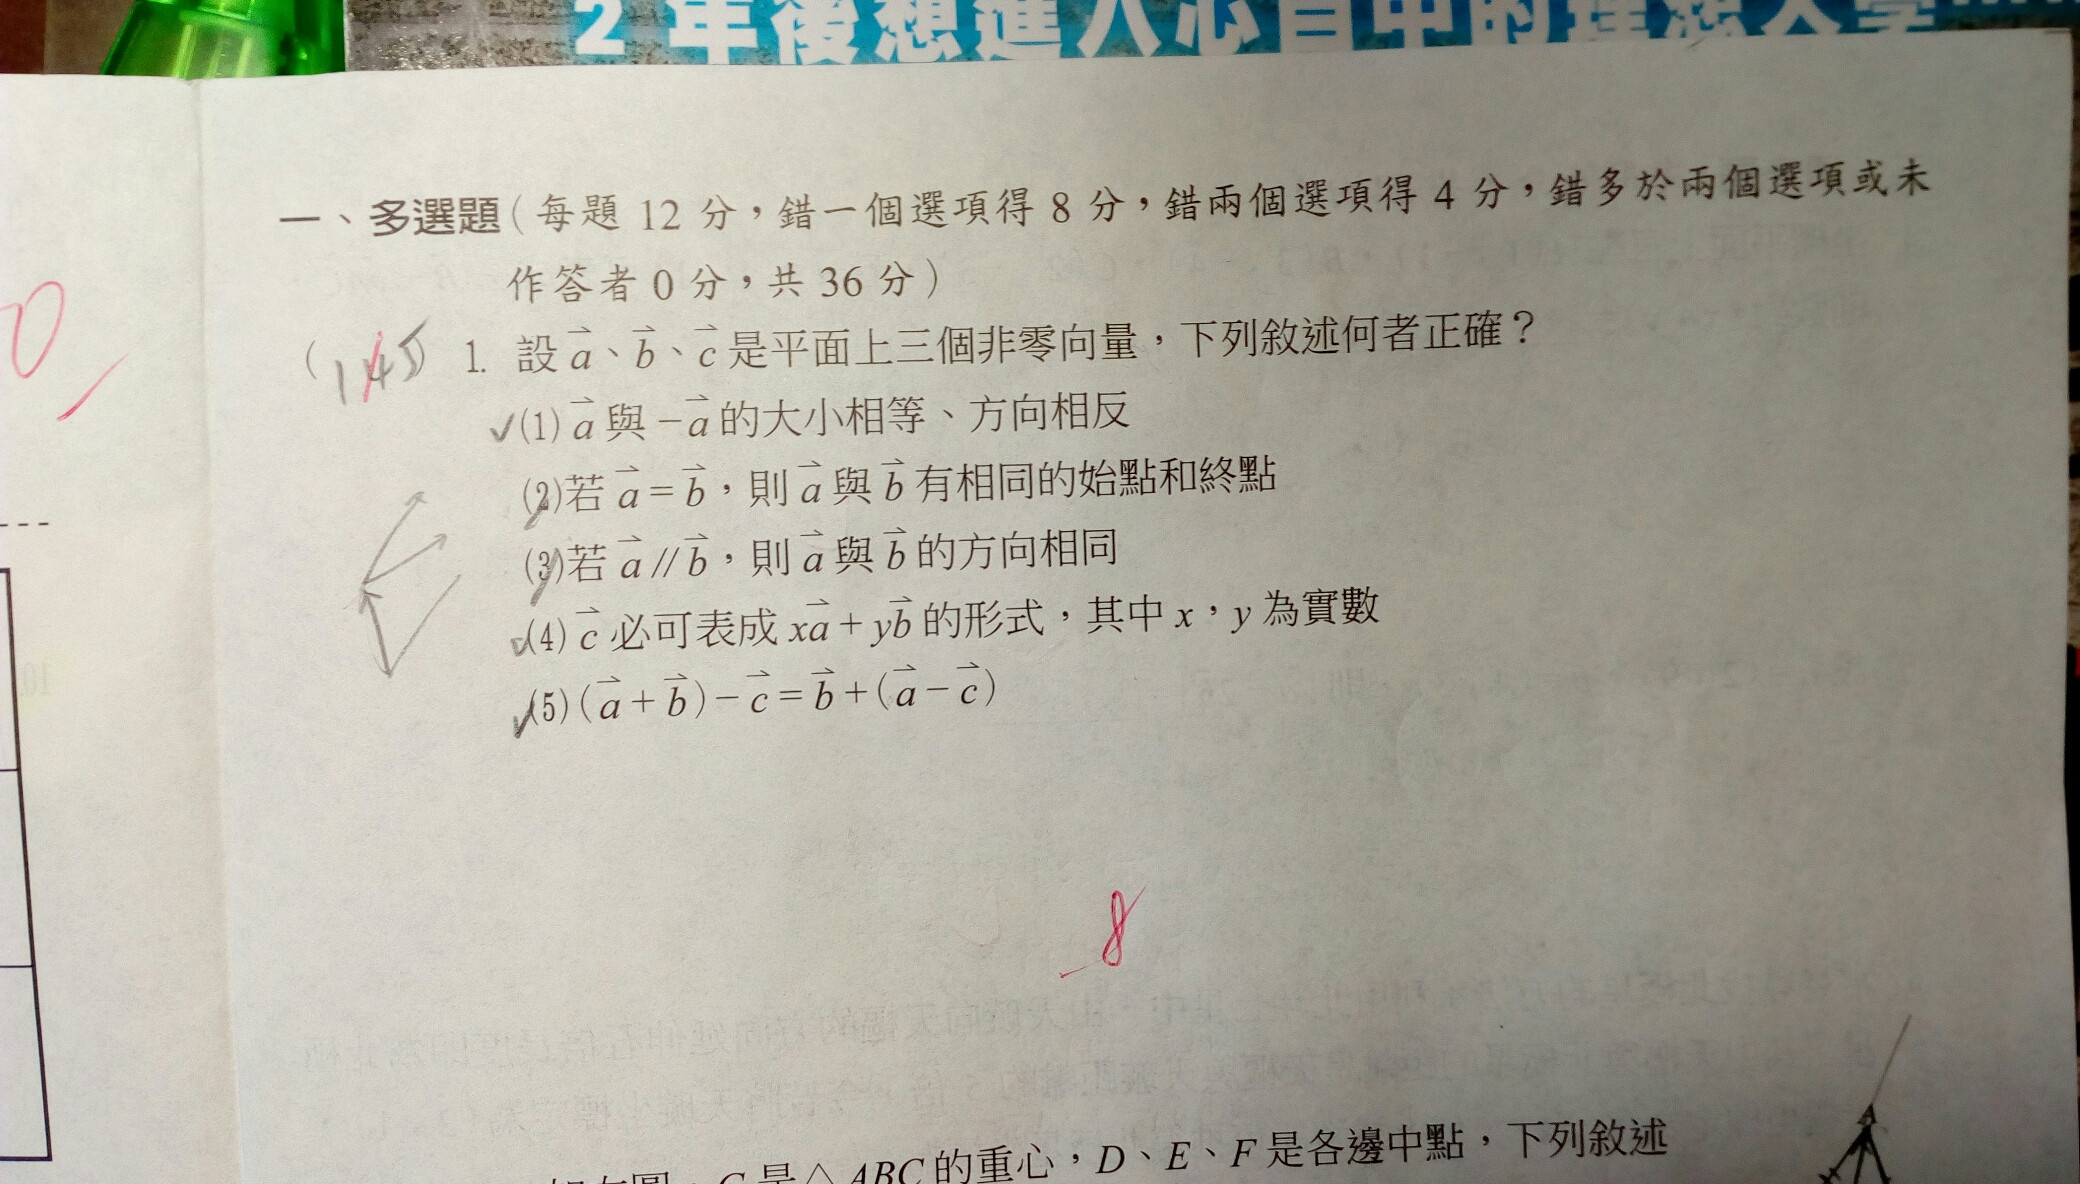 2年後想進入心目中的理想大學......
一、多選題（每題 12 分，錯一個選項得 8 分，錯兩個選項得 4 分，錯多於兩個選項或未
作答者 0 分，共 36 分）
(145) 1. 設 a⃗、b⃗、c⃗ 是平面上三個非零向量，下列敘述何者正確？
✓(1) a⃗ 與 −a⃗ 的大小相等、方向相反
(2)若 a⃗ = b⃗，則 a⃗ 與 b⃗ 有相同的始點和終點
(3)若 a⃗ // b⃗，則 a⃗ 與 b⃗ 的方向相同
✓(4) c⃗ 必可表成 xa⃗ + yb⃗ 的形式，其中 x，y 為實數
✓(5) (a⃗ + b⃗) − c⃗ = b⃗ + (a⃗ − c⃗)
-8
G 是△ABC 的重心，D、E、F 是各邊中點，下列敘述
A